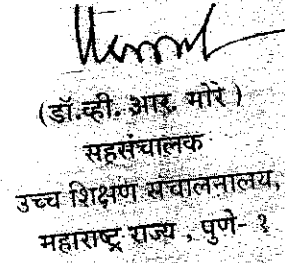 (डॉ.व्ही. आर. मोरे )
सहसंचालक
उच्च शिक्षण संचालनालय,
महाराष्ट्र राज्य , पुणे- १